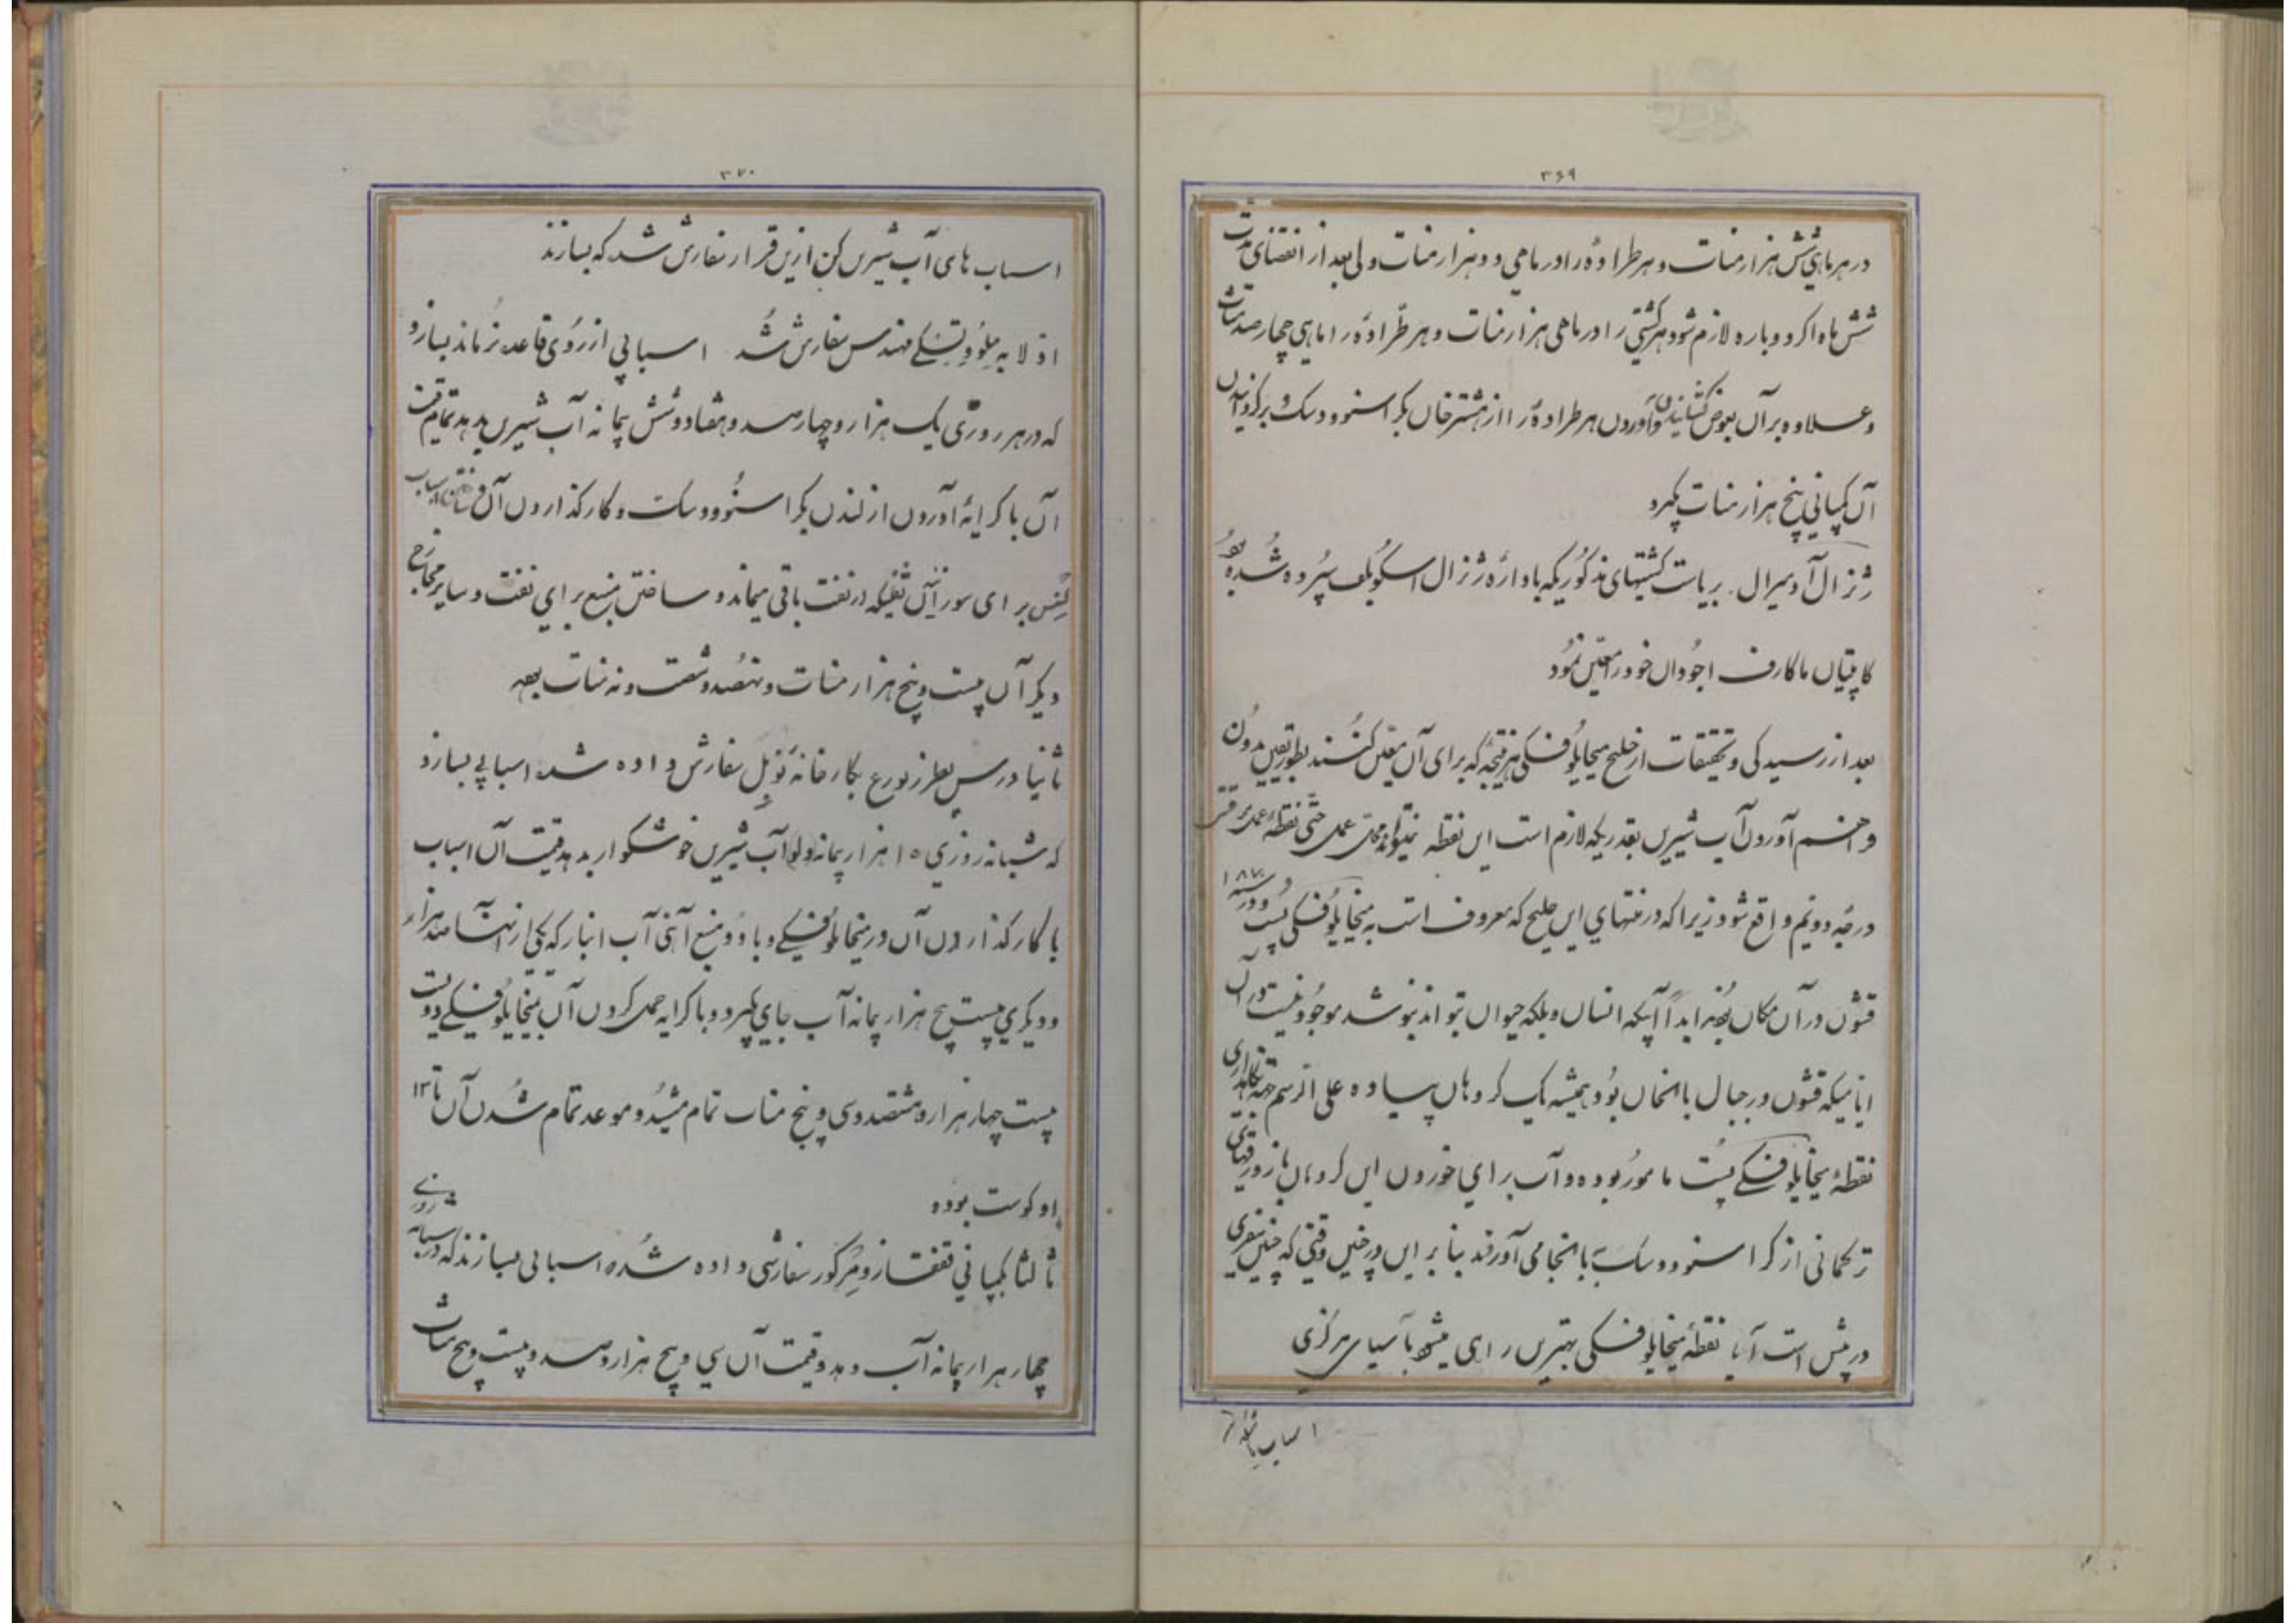 ۳۶۹
در هر ماهی شش هزار منات و هر طرادهٔ را در ماهی دو هزار منات ولی بعد از انقضای مدت
شش ماه اگر دوباره لازم شود هر کشتی را در ماهی هزار منات و هر طرادهٔ را ماهی چهار صد منات
و علاوه بر آن بعوض کشانیدن و آوردن هر طرادهٔ را از هشترخان بکراسنوودسک و برگردانیدن
آن کمپانی پنج هزار منات بگیرد
ژنرال آدمیرال بریاست کشتیهای مذکوریکه باداره ژنرال اسکوبلف سپرده شده بود
کاپیتان ماکارف اجودان خود را معین نمود
بعد از رسیدگی و تحقیقات از خلیج میخایلوفسکی هر نتیجه که برای آن معین کنند بطور یقین بدون
فراهم آوردن آب شیرین بقدریکه لازم است این نقطه نمیتواند محل عمل حتی نقطهٔ عمل موقتی
درجه دویم واقع شود زیرا که در منتهای این خلیج که معروف است به میخایلوفسکی پست و در سنه ۱۸۷۰
قشون در آن مکان بودند ابداً آبیکه انسان و بلکه حیوان بتواند بنوشد موجود نیست در آن
ایامیکه قشون در جبال بالخان بود همیشه یک گروهان پیاده علی الرسم بجهته نگاهداری
نقطهٔ میخایلوفسکی پست مامور بوده و آب برای خوردن این گروهان با زورقهای
ترکمانی از کراسنوودسک بانجا می آوردند بنابر این در چنین وقتی که چنین سفری
در پیش است آیا نقطهٔ میخایلوفسکی بهترین راهی میشود بآسیای مرکزی
۳۷۰
اسباب های آب شیرین کن ازین قرار سفارش شد که بسازند
اولا به مهندس سفارش شد اسبابی از روی قاعده نرماند بسازد
که در هر روزی یک هزار و چهارصد و هفتاد و شش پیمانه آب شیرین بدهد تمام قیمت
آن با کرایهٔ آوردن از لندن بکراسنوودسک و کار گذاردن آن و اسباب
برای سوزانیدن ثفلیکه در نفت باقی میماند و ساختن منبع برای نفت و سایر مخارج
دیگر آن بیست و پنج هزار منات و نهصد و شصت و نه منات بود
ثانیا در سن پطرزبورغ بکارخانه نوبل سفارش داده شد اسبابی بسازد
که شبانه روزی ۱۵ هزار پیمانه آب شیرین خوشگوار بدهد قیمت آن اسباب
با کار گذاردن آن در میخایلوفسکی و با دو منبع آهنی آب انبار که یکی از آنها صد هزار
و دیگری بیست پنج هزار پیمانه آب جای بگیرد و با کرایه حمل کردن آن بمیخایلوفسکی دویست
بیست چهار هزار و هشتصد و سی و پنج منات تمام میشد و موعد تمام شدن آن تا ۱۳
اوکوست بوده
ثالثا بکمپانی قفقاز و مرکور سفارشی داده شده اسبابی بسازند که در شبانه روزی
چهار هزار پیمانه آب دهد و قیمت آن سی و پنج هزار و صد و بیست و پنج منات